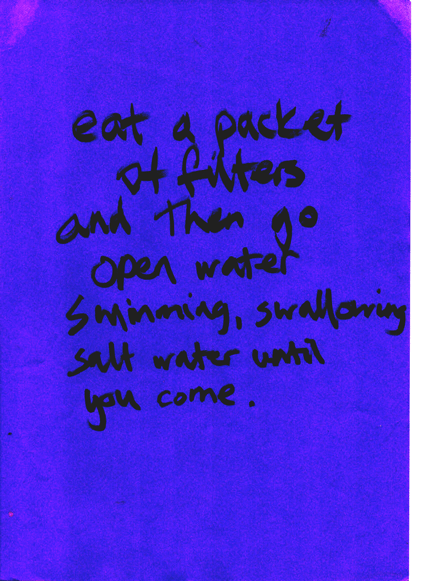 eat a packet
of filters
and then go
open water
swimming, swallowing
salt water until
you come.